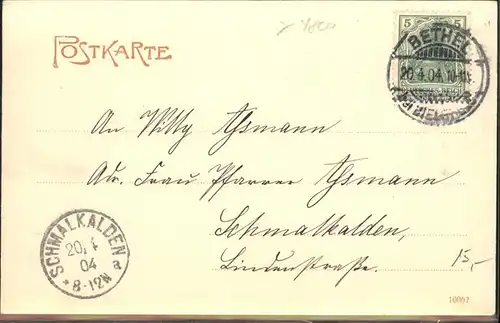 POSTKARTE
5 5
BETHEL
20.4.04.10-11
An Willy Asmann
Adr. Frau Pfarrer Asmann
Schmalkalden,
Lindenstraße.
SCHMALKALDEN
20.4
04
*8-12N a
15,-